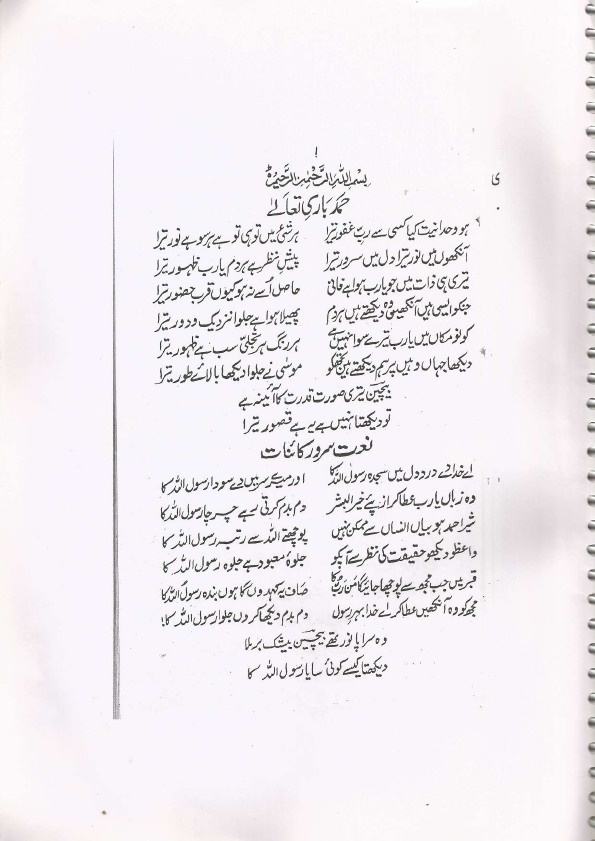 ا
بسم اللہ الرحمٰن الرحیم
ی
حمد باری تعالےٰ
ہو وحدانیت کیا کسی سے رب غفور تیرا ہر شئی میں تو ہی تو ہے ہر سو ہے نور تیرا
آنکھوں میں نور تیرا دل میں سرور تیرا پیش نظر ہے ہر دم یارب ظہور تیرا
تیری ہی ذات میں جو یارب ہوا ہے فانی حاصل اُسے نہ ہو کیوں قرب حضور تیرا
جنکو ایسی ہیں آنکھیں وہ دیکھتے ہیں ہر دم پھیلا ہوا ہے جلوا نزدیک و دور تیرا
کون و مکاں میں یارب تیرے سوا نہیں ہے ہر رنگ ہر تجلی سب ہے ظہور تیرا
دیکھا جہاں وہیں پر ہم دیکھتے ہیں تجھکو موسٰی نے جلوا دیکھا بالائے طور تیرا
بیچین تیری صورت قدرت کا آئینہ ہے
تو دیکھتا نہیں ہے یہ ہے قصور تیرا
نعت سرور کائنات
اے خدا دے درد دل میں سجدہ رسول اللہ کا اور میرے سر میں دے سودا رسول اللہ کا
وہ زباں یارب عطا کر از پئے خیر البشر دم بدم کرتی رہے چرچا رسول اللہ کا
شیر احمد ہو بیاں انساں سے ممکن نہیں پوچھئے اللہ سے رتبہ رسول اللہ کا
واعظو دیکھو حقیقت کی نظر سے آپکو جلوۂ معبود ہے جلوہ رسول اللہ کا
قبر میں جب مجھ سے پوچھا جائیگا من ربکا صاف یہ کہدوں گا ہوں بندہ رسول اللہ کا
مجھ کو وہ آنکھیں عطا کر اے خدا بہر رسول دم بدم دیکھا کروں جلوا رسول اللہ کا
وہ سراپا نور تھے بیچین بیشک برملا
دیکھتا کیسے کوئی سایا رسول اللہ کا